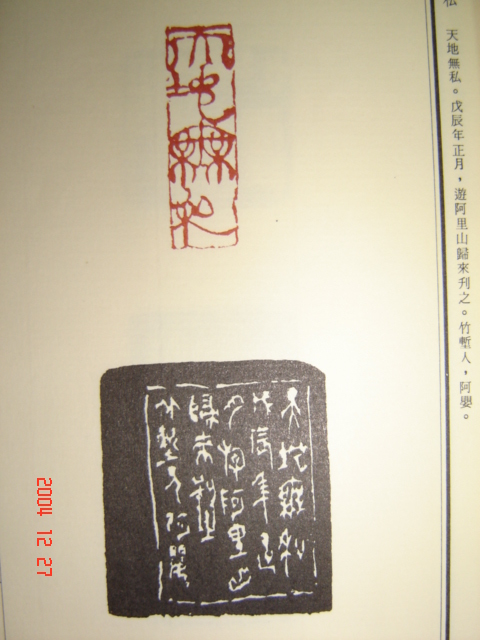 天地無私。戊辰年正月，遊阿里山歸來刋之。竹塹人，阿嬰。
天地無私
天地無私
戊辰年正
月遊阿里山
歸來刋之
竹塹人阿嬰
2004 12 27